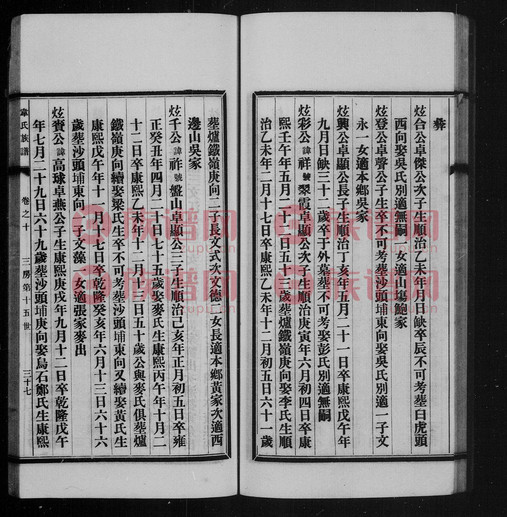 彝
炫台公卓傑公次子生順治乙未年月日缺卒辰不可考葬曰虎頭
西向娶吳氏別適無嗣一女適山塲鮑家
炫登公卓聲公子生卒不可考葬沙頭埔東向娶吳氏別適一子文
永一女適本鄉吳家
炫興公卓顯公長子生順治丁亥年五月二十一日卒康熙戊午年
九月日缺三十二歲卒于外墓葬不可考娶彭氏別適無嗣
炫彩公諱祥號翠霞卓顯公次子生順治庚寅年六月初四日卒康
熙壬午年五月十一日五十三歲葬爐鐵嶺庚向娶李氏生順
治乙未年二月十七日卒康熙乙未年十二月初五日六十一歲
葬爐鐵嶺庚向二子長文式次文德二女長適本鄉黃家次適西
邊山吳家
炫千公諱祥號盤山卓顯公三子生順治己亥年正月初五日卒雍
正癸丑年四月二日七十五歲娶麥氏生康熙丙午年十月二
十二日卒康熙乙未年十二月十二日五十歲公與麥氏俱葬爐
鐵嶺庚向續娶梁氏生卒不可考葬沙頭埔東向又續娶黃氏生
康熙戊午年十一月十七日卒乾隆癸亥年六月十三日六十六
歲葬沙頭埔東向一子文藻一女適張家麥出
炫賚公諱高球卓燕公子生康熙庚戌年九月十二日卒乾隆戊午
年七月二十九日六十九歲葬沙頭埔庚向娶烏石鄭氏生康熙
韋氏族譜
卷之十
三房第十五世
三十七
族谱网